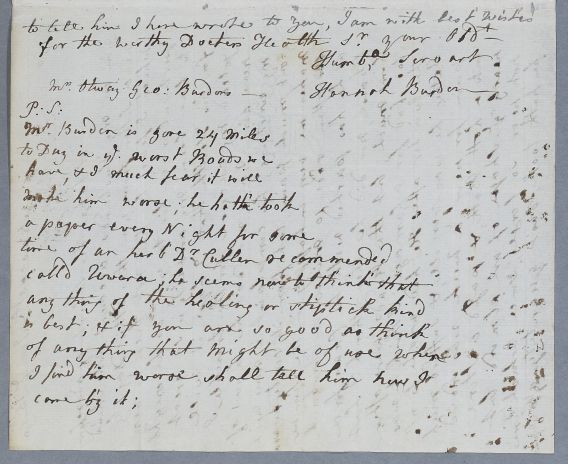 to tell him I have wrote to you, I am with best wishes
for the worthy Docters Health Sr. your Obdt
Humble. Servant
Hannah Burdon
Mrs. Geo: Burdons
P:S:
Mr. Burdon is gone 24 Miles
to Day in ye. worst Roads we
have, & I much fear it will
make him worse; he hath took
a paper every Night for some
time of an herb Dr. Cullen recommended
calld Uwarsa: he seems now to think that
any thing of the healing or stiptick kind
is best; & if you are so good as think
of any thing that might be of use when
I find him worse shall tell him how I
came by it;